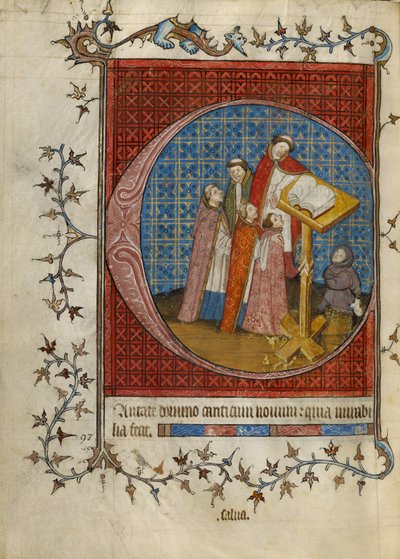 CAntate domino canticum nouum: quia mirabi
lia fecit.
97
salua.